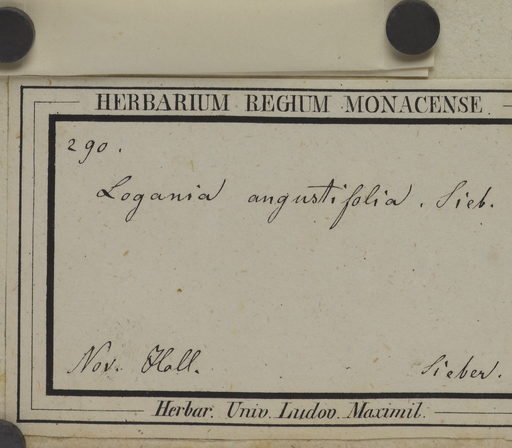 HERBARIUM REGIUM MONACENSE
290.
Logania angustifolia. Sieb.
Nov. Holl.
Sieber.
Herbar. Univ. Ludov. Maximil.